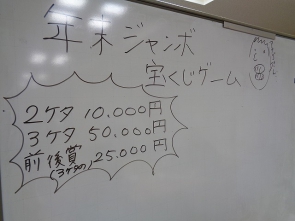 年末ジャンボ
宝くじゲーム
2ケタ 10.000円
3ケタ 50.000円
前後賞 25.000円
(3ケタの)